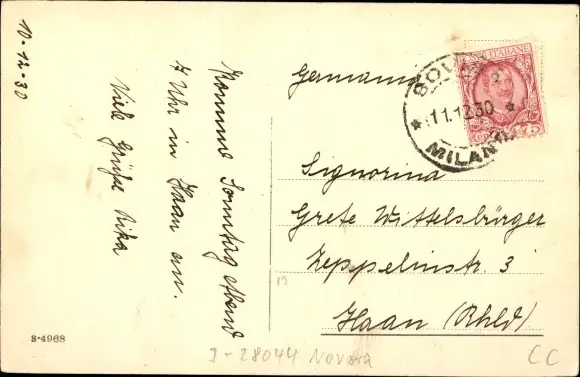 10·12·30
Komme Sonntag abend
7 Uhr in Haan an.
Viele Grüße Rika
Germania
POSTE ITALIANE
11.12.30
MILANO
75
Signorina
Grete Wittelsbürger
Zeppelinstr. 3
Haan (Rhld)
8-4968
J-28044 Novara
CC